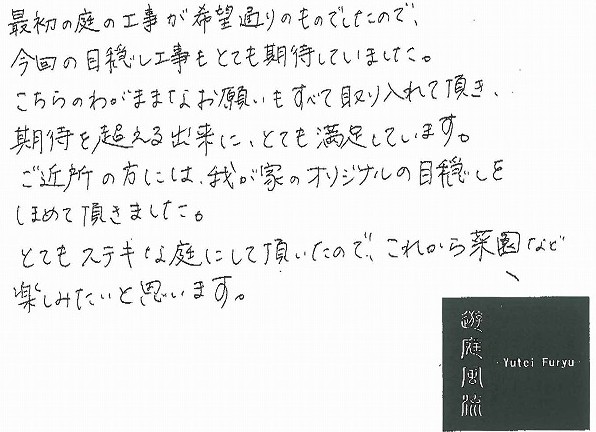 最初の庭の工事が希望通りのものでしたので、
今回の目穏し工事もとても期待していました。
こちらのわがままなお願いもすべて取り入れて頂き、
期待を超える出来に、とても満足しています。
ご近所の方には、我が家のオリジナルの目穏しを
ほめて頂きました。
とてもステキな庭にして頂いたので、これから菜園など
楽しみたいと思います。
遊庭風流
Yutei Furyu